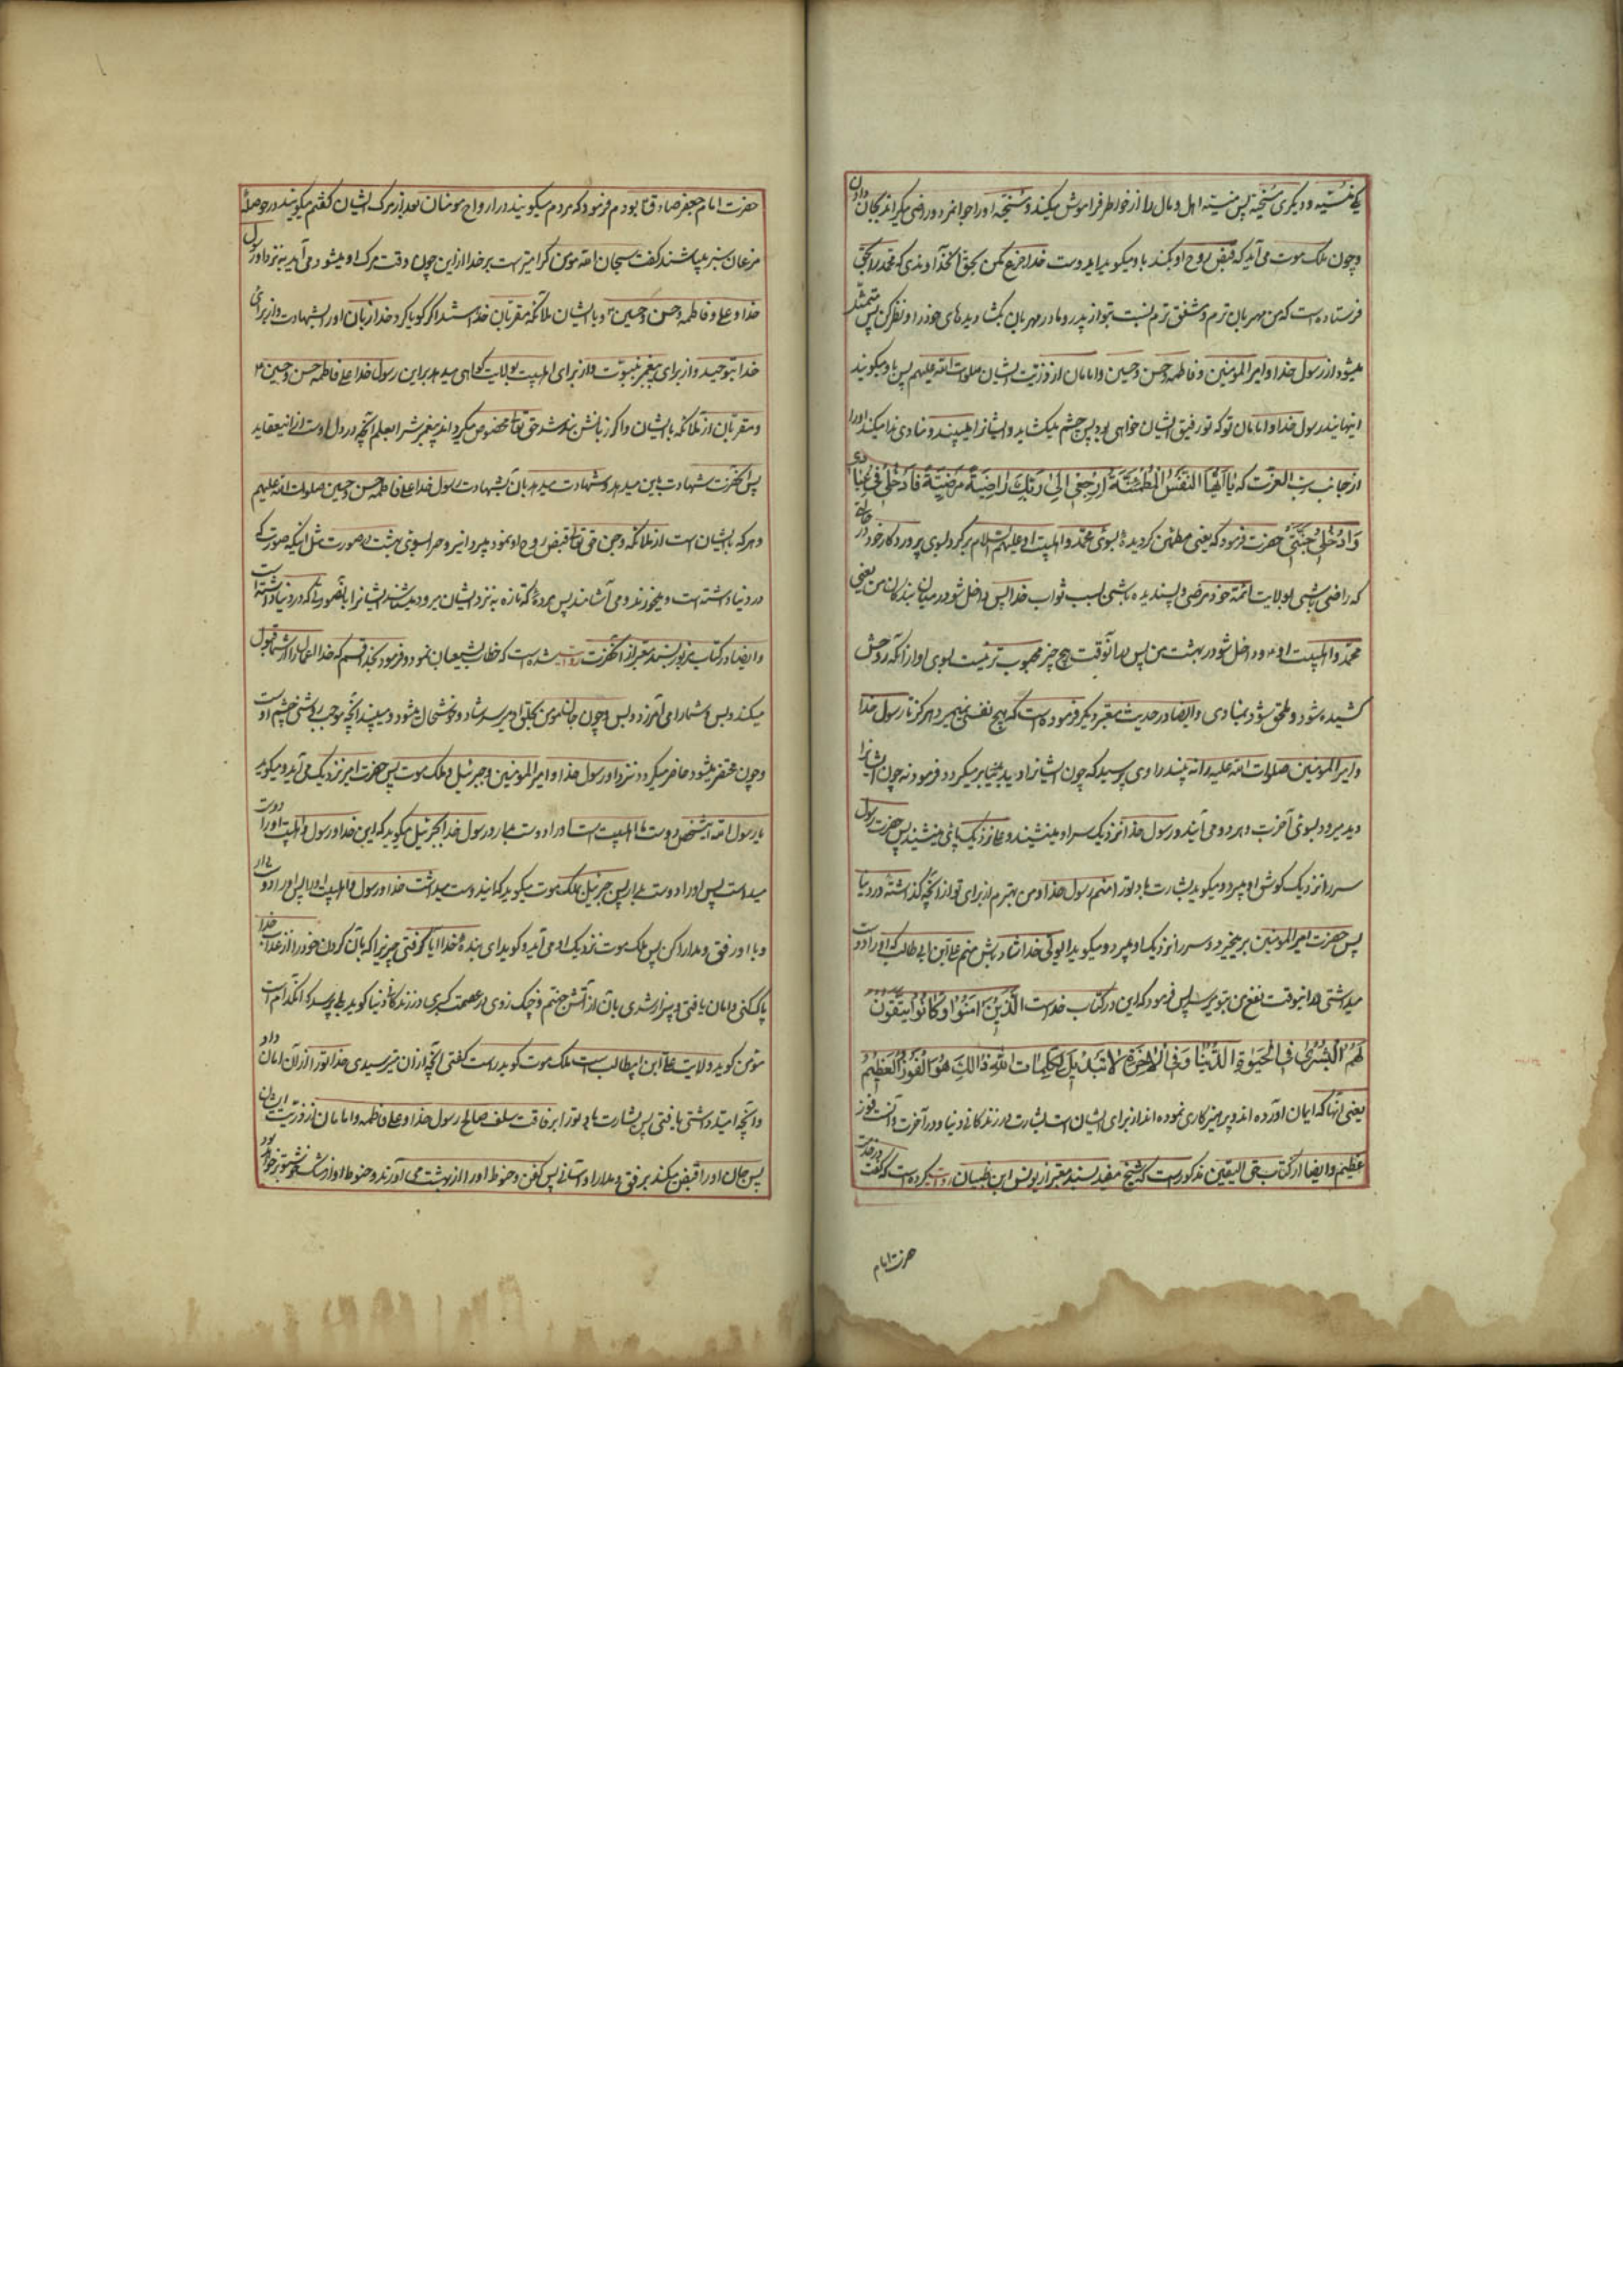 یکی منسیه و دیگری سخیه پس منسیه اهل و مال را از خواطر فراموش میکند و سخیه او را جوانمرد و راضی میگرداند بجان دادن
و چون ملک موت می آید که قبض روح او بکند باو میگوید ای دوست خدا جزع مکن بحق آنخداوندی که محمد را بحق
فرستاده است که من مهربان ترم و مشفق ترم نسبت بتو از پدر و مادر مهربان بگشا دیدهای خود را و نظر کن پس متمثل
میشود از رسول خدا و امیر المومنین و فاطمه و حسن و حسین و امامان از ذریت ایشان صلوات الله علیهم پس باو میگویند
اینها یند رسول خدا و امامان تو که تو رفیق ایشان خواهی بود پس چشم میگشاید و ایشانرا میبیند و منادی ندا میکند او را
از جانب رب العزت که یا ایها النفس المطمئنة ارجعی الی ربک راضیة مرضیة فادخلی فی عبادی
وادخلی جنتی حضرت فرمود که یعنی مطمئن گردیدهٔ بسوی محمد و اهلبیت او علیهم السلام برگرد بسوی پروردگار خود در
که راضی باشی بولایت ائمه خود مرضی و پسندیده باشی بسبب ثواب خدا پس داخل شو در میان بندگان من یعنی
محمد و اهلبیت او و داخل شو در بهشت من پس در آنوقت هیچ چیز محبوب تر نیست بسوی او از آنکه روحش
کشیده شود و ملحق شود بمنادی و ایضا در حدیث معتبر دیگر فرموده است که هیچ نفسی نمیمیرد هرگز تا رسول خدا
و امیر المومنین صلوات الله علیه را نه بیند راوی پرسید که چون ایشانرا دید بدنیا برمیگردد فرمود نه چون ایشانرا
دید میرود بسوی آخرت و هر دو می آیند و رسول خدا نزدیک سر او مینشیند و علی نزدیک پای مینشیند پس حضرت رسول
سر را نزدیک گوش او میبرد و میگوید بشارت باد تو را منم رسول خدا و من بهترم از برای تو از آنچه گذاشتهٔ در دنیا
پس حضرت امیر المومنین برمیخیزد و سر را نزدیک او میبرد و میگوید ای ولی خدا شاد باش منم علی ابن ابی طالب که او را دوست
میداشتی در اینوقت نفع من بتو میرسد پس فرمود که این در کتاب خداست الذین امنوا و کانوا یتقون
لهم البشری فی الحیوة الدنیا و فی الاخرة لا تبدیل لکلمات الله ذالک هو الفوز العظیم
یعنی آنها که ایمان آورده اند و پرهیزکاری نموده اند از برای ایشان است بشارت در زندگانی دنیا و در آخرت و آنست فوز
عظیم و ایضا از کتاب حق الیقین مذکور است که شیخ مفید بسند معتبر از یونس ابن ظبیان روایت کرده است که گفت در خدمت
حضرت امام
حضرت امام جعفر صادق ع بودم فرمود که مردم چه میگویند در ارواح مومنان بعد از مرگ ایشان گفتم میگویند در حوصلهٔ
مرغان سبز میباشند گفت سبحان الله مومن گرامیتر است بر خدا از این چون وقت مرگ او میشود می آید به نزد او رسول
خدا و علی و فاطمه و حسن و حسین و با ایشان ملائکه مقربان خدا هستند اگر گویا کرد خدا زبان او را بشهادت از برای
خدا بتوحید و از برای پیغمبر بنبوت و از برای اهلبیت بولایت گواهی میدهد بر این رسول خدا و علی و فاطمه و حسن و حسین
و مقربان از ملائکه با ایشان و اگر زبانش بند شد حق تعالی مخصوص میگرداند پیغمبرش را بعلم آنچه در دل اوست از این عقاید
پس آنحضرت شهادت باین میدهد و شهادت میدهد بآن بشهادت رسول خدا علی و فاطمه و حسن و حسین صلوات الله علیهم
و هر که با ایشان است از ملائکه و چون حق تعالی قبض روح او نمود میبرد آنروح را بسوی بهشت در صورت مثل آنکه صورت که
در دنیا داشته است و میخورند و می آشامند پس مردهٔ که تازه به نزد ایشان میرود میشناسد ایشانرا بآنصورت که در دنیا داشته است
و ایضا در کتاب مزبور بسند معتبر از آنحضرت روایت شده است که خطاب بشیعیان نمود و فرمود بخدا قسم که خدا اعمال را از شما قبول
میکند و بس و شما را می آمرزد و بس و چون جان مومن بحلق او میرسد شاد و خوشحال میشود و میبیند آنچه موجب روشنی چشم اوست
و چون محتضر میشود حاضر میگردد نزد او رسول خدا و امیر المومنین و جبرئیل و ملک موت پس حضرت امیر نزدیک می آید و میگوید
یا رسول الله این شخص دوست ما اهلبیت است او را دوست بدار و رسول خدا بجبرئیل میگوید که این خدا و رسول و اهلبیت او را دوست
میداشت پس او را دوست بدار پس جبرئیل بملک موت میگوید که این دوست میداشت خدا و رسول و اهلبیت او را پس او را دوست بدار
و با او رفق و مدارا کن پس ملک موت نزدیک او می آید و گوید ای بندهٔ خدا ایا گرفتی چیزیرا که بآن گردن خود را از عذاب خدا
پاک کنی و امان یافتی و بیزار شدی بآن از آتش جهنم و چنگ زدی در عصمت کبری در زندگانی دنیا گوید بلی پرسد که آنکدام است
مؤمن گوید ولایت علی ابن ابیطالب است ملک موت گوید راست گفتی آنچه از آن میترسیدی خدا تو را از آن امان داد
و آنچه امید داشتی یافتی پس بشارت باد تو را برفاقت سلف صالح رسول خدا و علی و فاطمه و امامان از ذریت ایشان
پس جان او را قبض میکند برفق و مدارا و آسانی پس کفن و حنوط او را از بهشت می آورند و حنوط او از مشک خوشبوتر خواهد بود